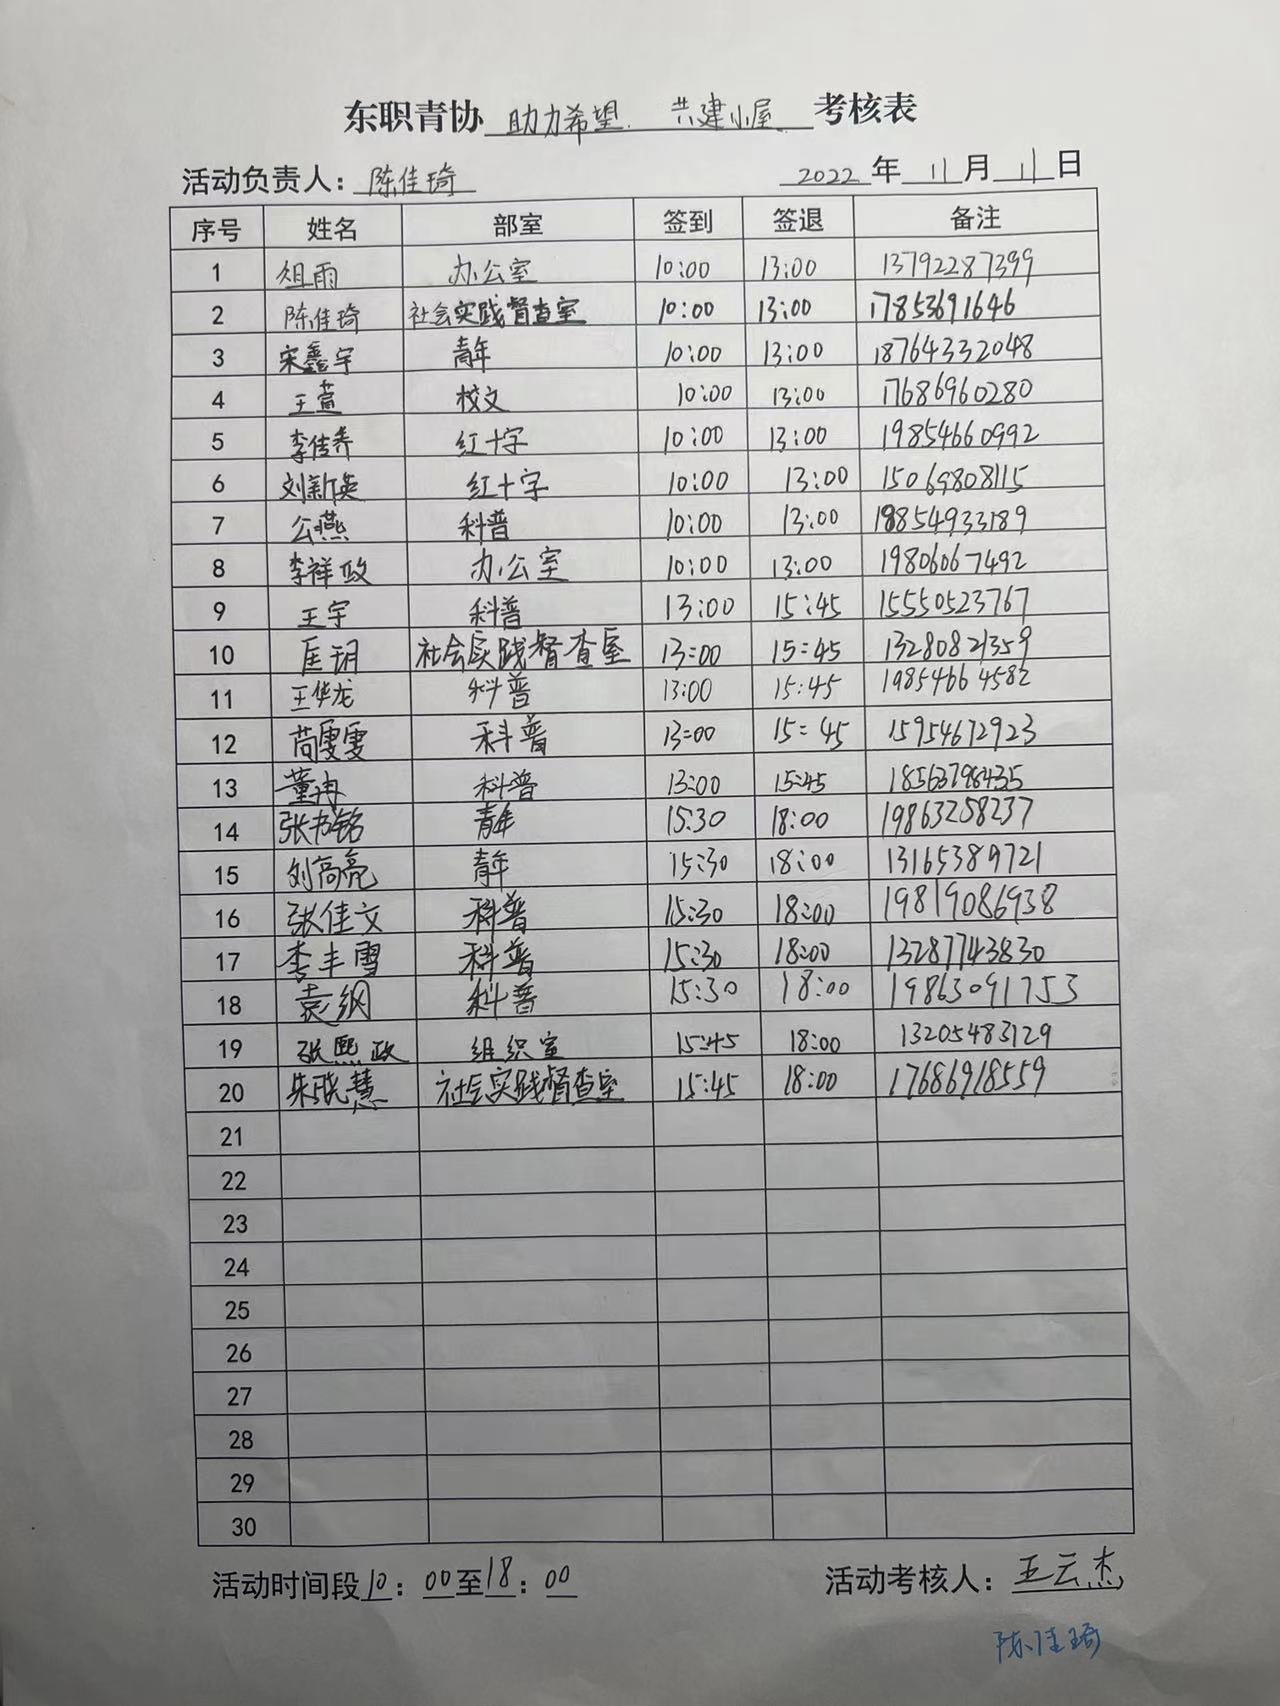 东职青协 助力希望 共建小屋 考核表
活动负责人：陈佳琦 2022 年 11 月 11 日
序号 姓名 部室 签到 签退 备注
1 俎雨 办公室 10:00 13:00 13792287399
2 陈佳琦 社会实践督查室 10:00 13:00 17853691646
3 宋鑫宇 青年 10:00 13:00 18764332048
4 王萱 校文 10:00 13:00 17686960280
5 李佳养 红十字 10:00 13:00 19854660992
6 刘新英 红十字 10:00 13:00 15069808115
7 公燕 科普 10:00 13:00 19854933189
8 李祥政 办公室 10:00 13:00 19806067492
9 王宇 科普 13:00 15:45 15550523767
10 匡玥 社会实践督查室 13:00 15:45 13280821359
11 王华龙 科普 13:00 15:45 19854664582
12 苘雯雯 科普 13:00 15:45 15954672923
13 董冉 科普 13:00 15:45 18563798435
14 张书铭 青年 15:30 18:00 19863258237
15 刘高亮 青年 15:30 18:00 13165389721
16 张佳文 科普 15:30 18:00 19819086938
17 李丰雪 科普 15:30 18:00 13287743830
18 袁纲 科普 15:30 18:00 19863091753
19 张熙政 组织室 15:45 18:00 13205483129
20 朱晓慧 社会实践督查室 15:45 18:00 17686918559
21
22
23
24
25
26
27
28
29
30
活动时间段 10：00至18：00 活动考核人：王云杰
陈佳琦